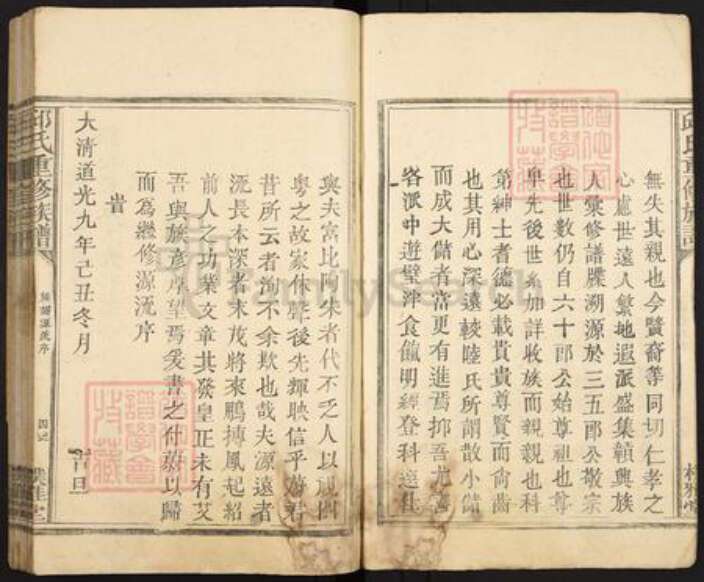 無失其親也今賢裔等同切仁孝之
心慮世遠人繁地遐派盛集贛與族
人彙修譜牒溯源於三五郎公敬宗
也世數仍自六十郎公始尊祖也尊
卑先後世系加詳收族而親親也科
第紳士者德必載貴貴尊賢而尙齒
也其用心深遠較陸氏所謂散小儲
而成大儲者當更有進焉抑吾尤
各派中遊璧泮食餼明經登科選仕
與夫富比陶朱者代不乏人以視
粵之故家休聲後先輝映信乎
昔所云者洵不余欺也哉夫源遠者
流長本深者末茂將來鵬搏鳳起紹
前人之功業文章其發皇正未有艾
吾與族彥厚望焉爰書之什蘄以歸
而爲繼修源流序
旹
大清道光九年己丑冬月 吉旦
邱氏重修族譜
源流序
FamilySearch
譜學會
特藏